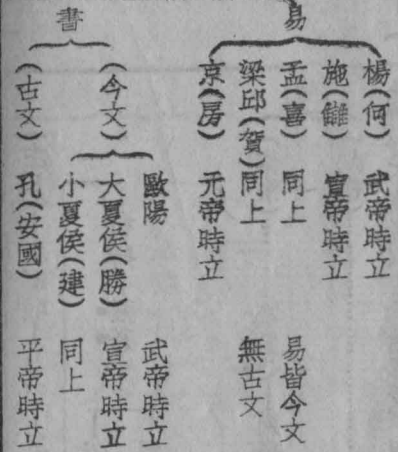 易
楊(何) 武帝時立
施(讎) 宣帝時立
孟(喜) 同上 易皆今文
梁邱(賀) 同上 無古文
京(房) 元帝時立
書
(今文)
歐陽 武帝時立
大夏侯(勝) 宣帝時立
小夏侯(建) 同上
(古文) 孔(安國) 平帝時立